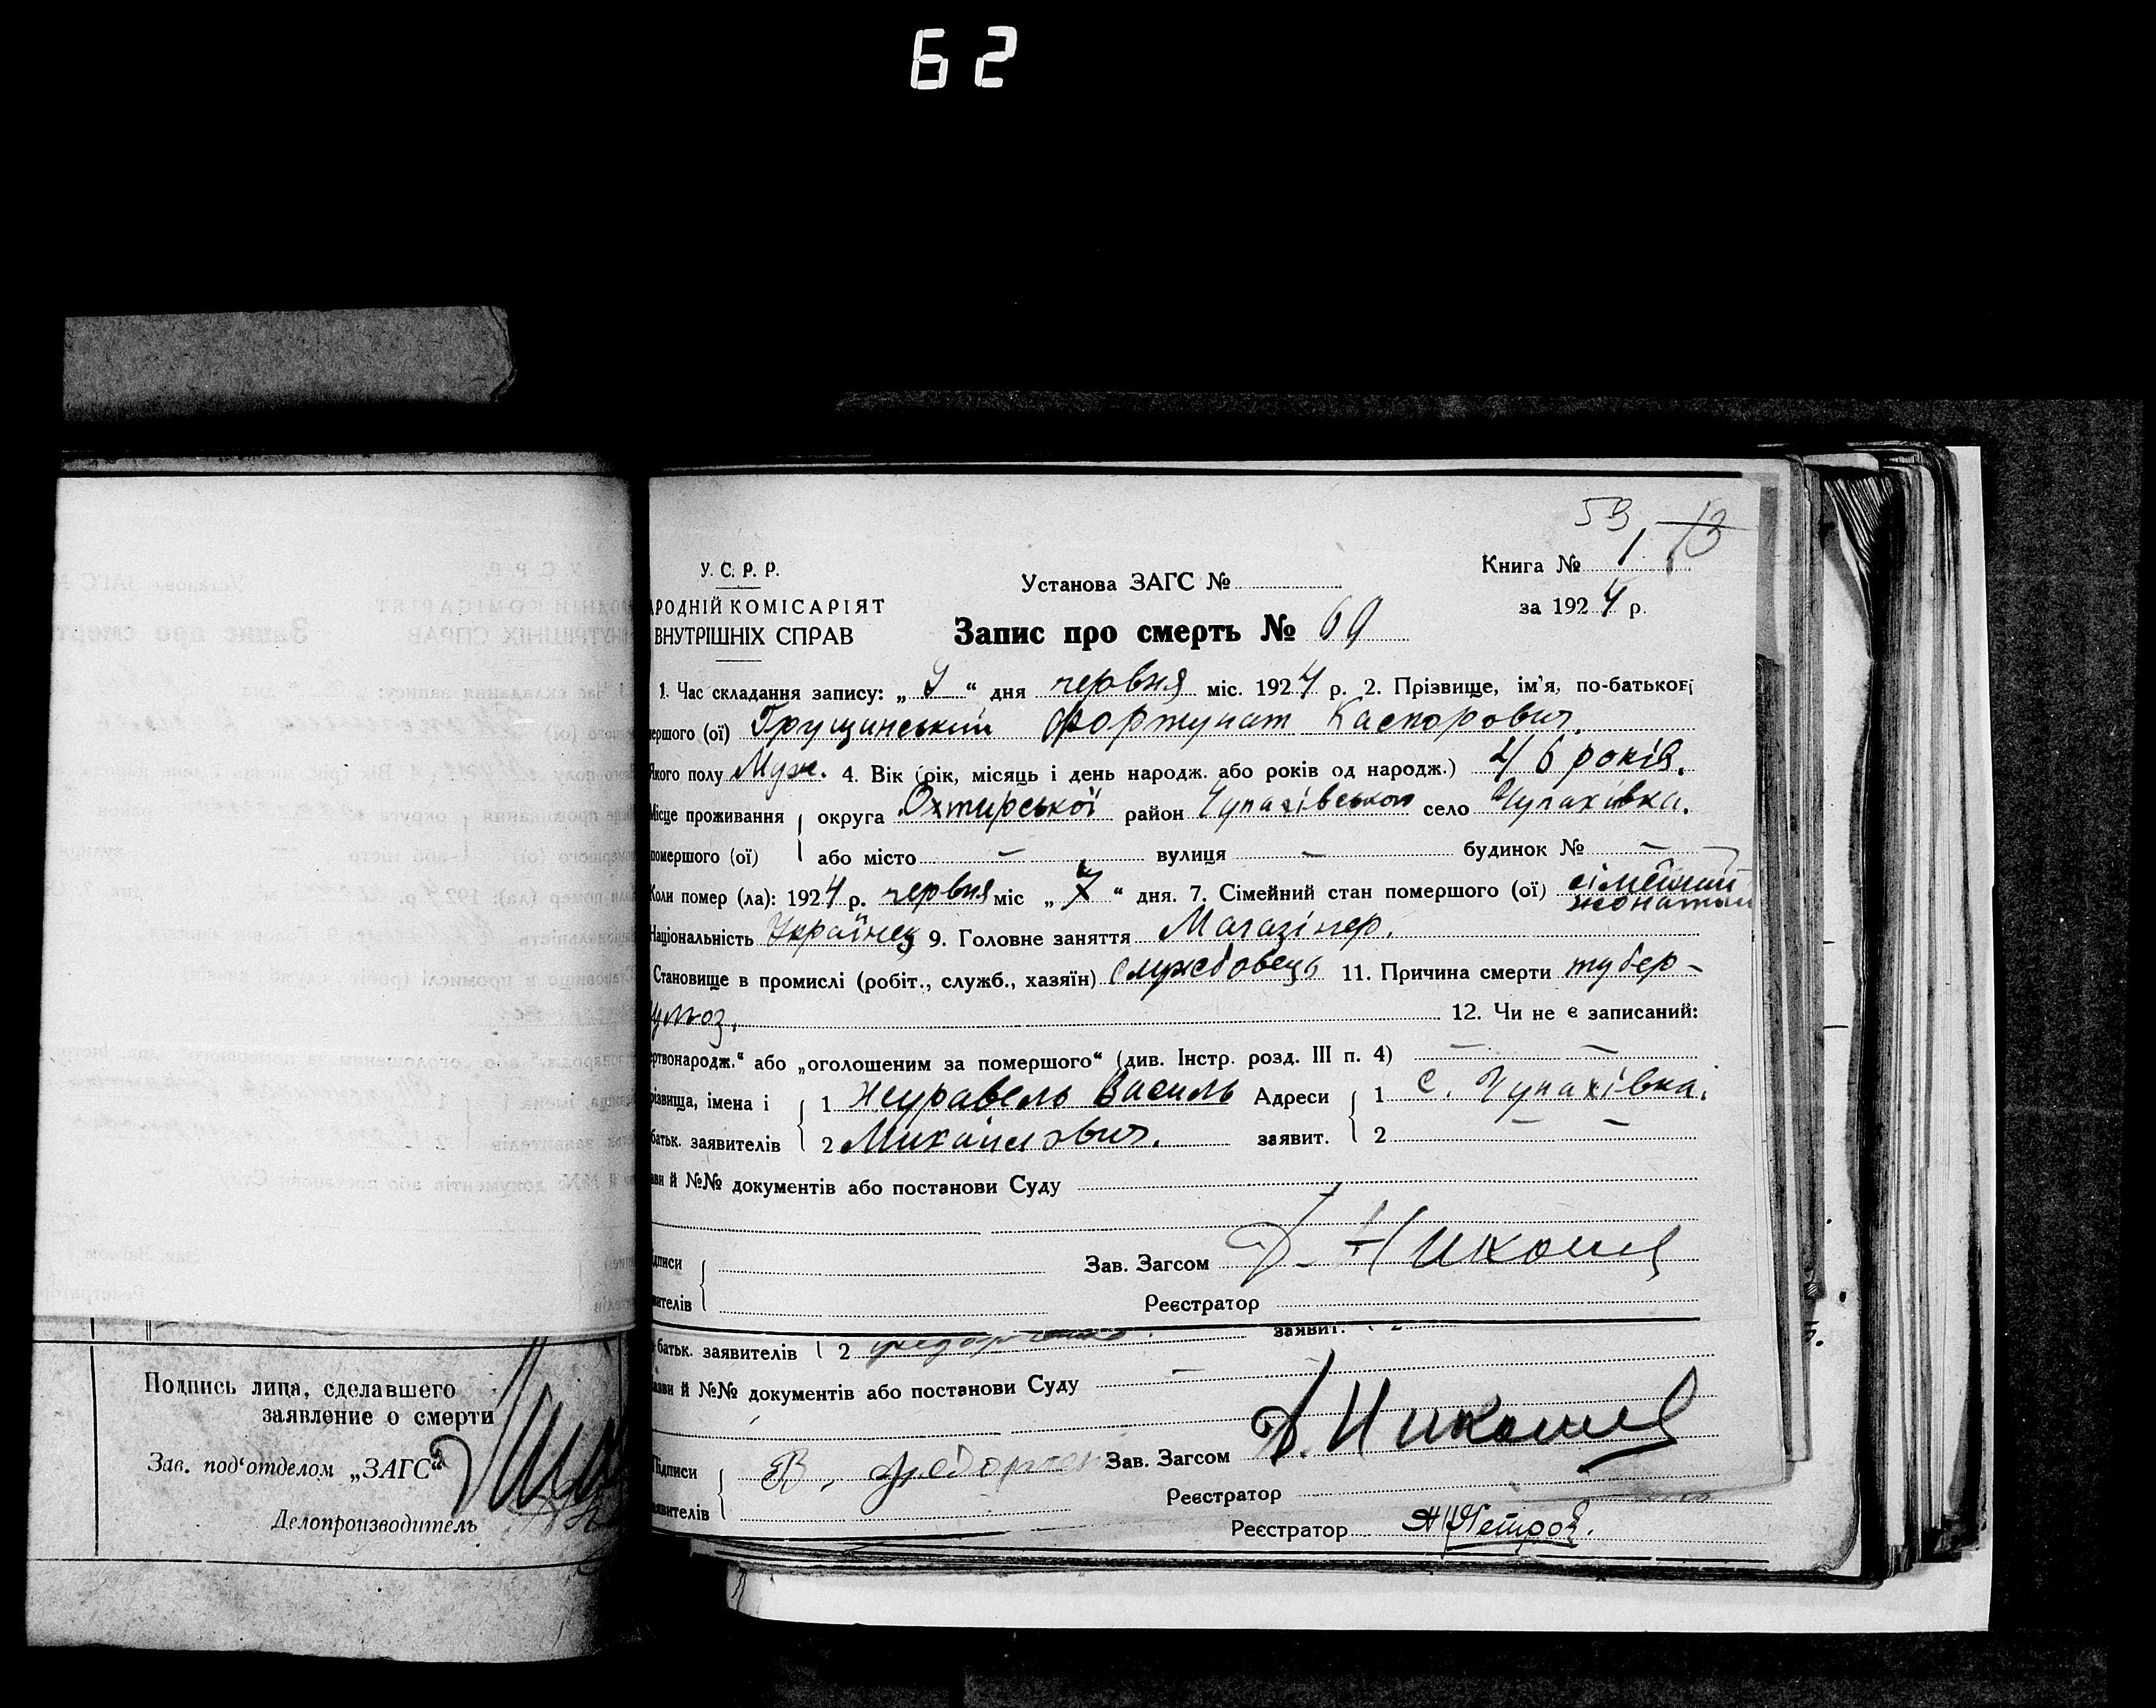 62
53
13
У. С. Р. Р.
Установа ЗАГС №
Книга № 1
АРОДНІЙ КОМІСАРІЯТ
ВНУТРІШНІХ СПРАВ
за 1924 р.
Запис про смерть № 69
1. Час складання запису: „ “ дня червня міс. 1924 р. 2. Прізвище, ім’я, по-батькові
мершого (ої) Грущинський Фортунат Каспорович.
Якого полу Муж. 4. Вік (рік, місяць і день народж. або років од народж.) 46 років.
Місце проживання округа Охтирської район Чупахівськом село Чупахівка.
помершого (ої) або місто — вулиця — будинок № —
Коли помер (ла): 1924 р. червня міс „7“ дня. 7. Сімейний стан помершого (ої) сімейний
жонатый
Національність Українец 9. Головне заняття Магазінер.
Становище в промислі (робіт., служб., хазяїн) Службовець 11. Причина смерти тубер-
ульоз. 12. Чи не є записаний:
ертвонародж.“ або „оголошеним за помершого“ (див. Інстр. розд. III п. 4) — —
різвища, імена і 1 Журавель Василь Адреси 1 с. Чупахівка.
батьк. заявителів 2 Михайлович. заявит. 2 — —
ави й №№ документів або постанови Суду
дписи Зав. Загсом
вителів Реєстратор
батьк. заявителів 2 заявит. 2
ави й №№ документів або постанови Суду —
Підписи В. Федорчен Зав. Загсом
аявителів Реєстратор
Реєстратор Петров.
Подпись лица, сделавшего
заявление о смерти
Зав. под‘отделом „ЗАГС“
Делопроизводитель